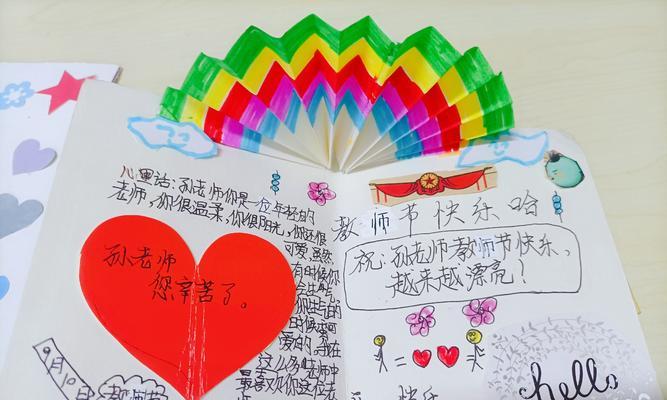 心里话:孙老师你是一位年轻的
老师,你很温柔,你很阳光,你还很
可爱,虽然
有时候你
会生气
你生气的
时候也可
爱的,我在
这么多老师中
最喜欢你这位老
孙老师
您辛苦了。
9月10日
教师节
教师节快乐哈
祝:孙老师教师节快乐,
越来越漂亮?
=
快乐
hello